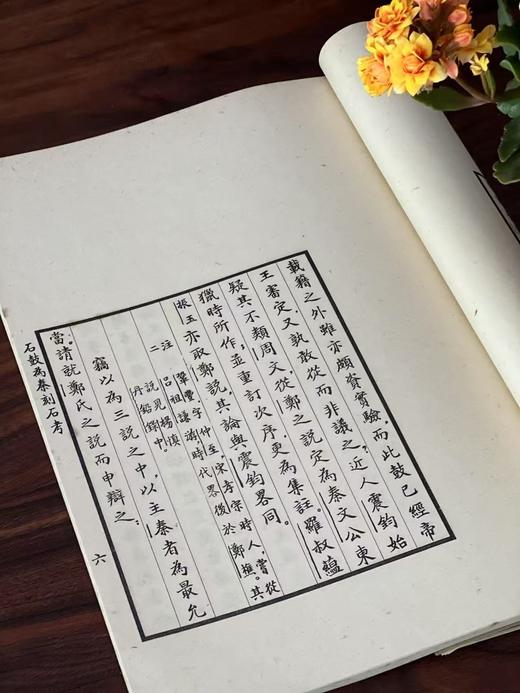 載籍之外雖亦頗資實驗,而此鼓已經帝
王審定,又孰敢從而非議之,近人震鈞始
疑其不類周文,從鄭之說定為秦文公東
獵時所作;並重訂次序,更為集註。羅叔蘊
振玉亦取鄭說,其論與震鈞畧同。
注二
鞏豐字仲至宋孝宗時人,嘗從
呂祖謙游,時代畧後於鄭樵。其
說見楊慎
丹鉛錄中。
竊以為三說之中,以主秦者為最允
當。請就鄭氏之說而申辯之:
石鼓為秦刻石考
六